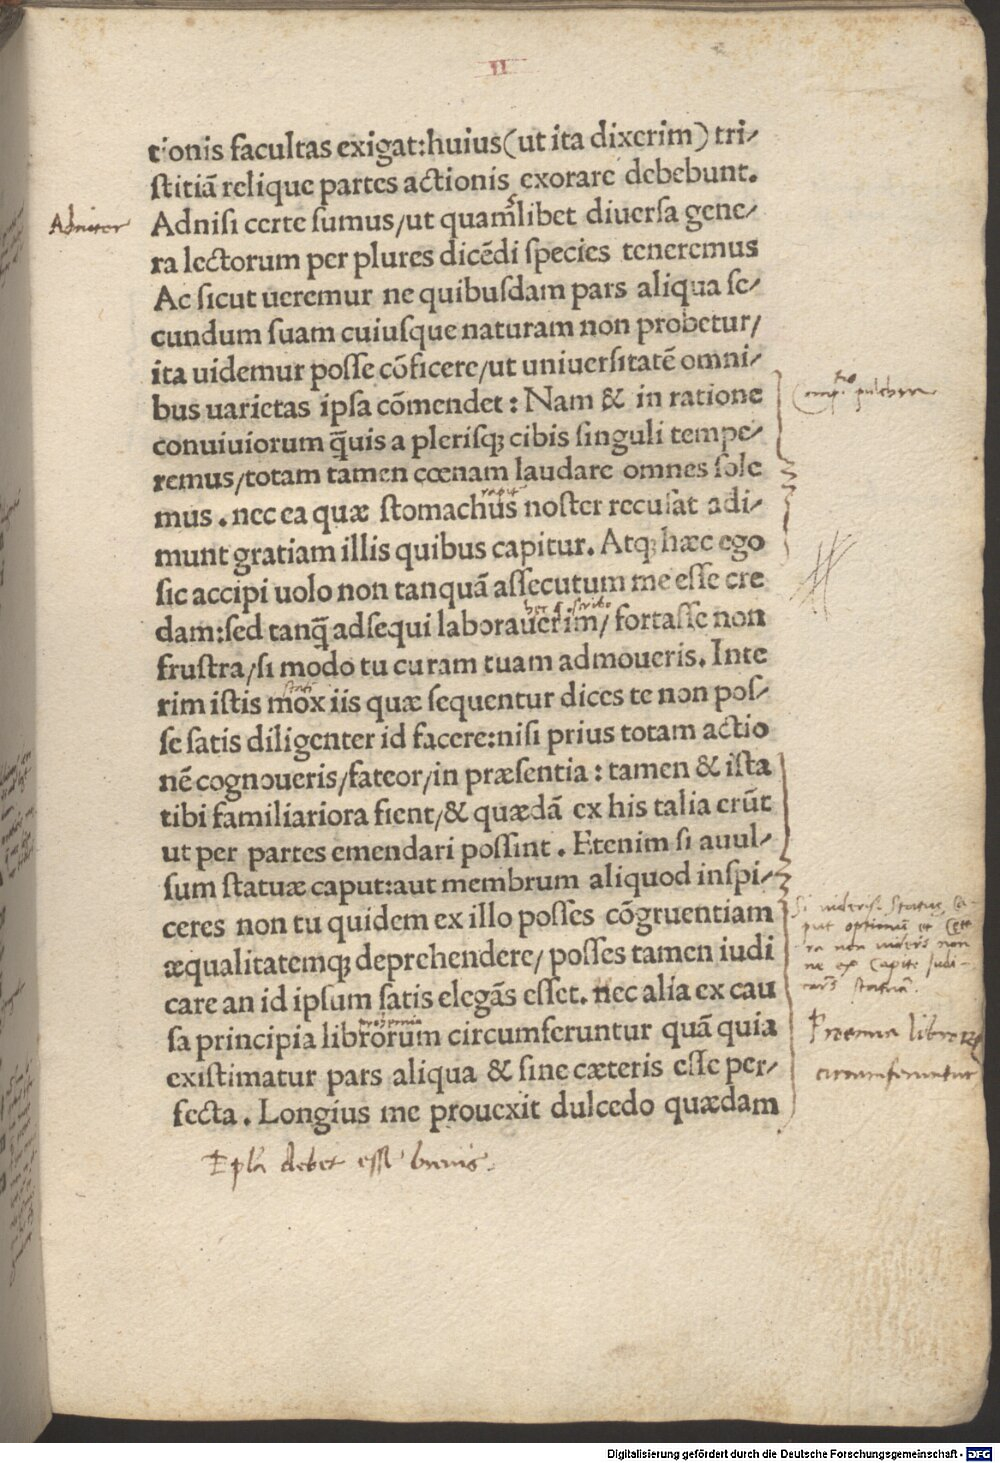 II
tionis facultas exigat:huius(ut ita dixerim) tri/
ſtitiā relique partes actionis exorare debebunt.
Adnitor
Adniſi certe ſumus/ut quamlibet diuerſa gene/
ra lectorum per plures dicēdi ſpecies teneremus
Ac ſicut ueremur ne quibuſdam pars aliqua ſe/
cundum ſuam cuiuſque naturam non probetur/
ita uidemur poſſe cōficere/ut uniuerſitatē omni/
bus uarietas ipſa cōmendet : Nam & in ratione
pulchra
conuiuiorum q̄uis a pleriſq; cibis ſinguli tempe/
remus/totam tamen cœnam laudare omnes ſole
mus . nec ea quæ ſtomachus noſter recuſat adi/
munt gratiam illis quibus capitur. Atq; hæc ego
ſic accipi uolo non tanquā aſſecutum me eſſe cre
dam:ſed tanq̄ adſequi laborauerim/ fortaſſe non
fruſtra/ſi modo tu curam tuam admoueris. Inte
rim iſtis mox iis quæ ſequentur dices te non poſ/
ſe ſatis diligenter id facere:niſi prius totam actio
nē cognoueris/fateor/in præſentia : tamen & iſta
tibi familiariora fient/& quædā ex his talia erūt
ut per partes emendari poſſint . Etenim ſi auul/
ſum ſtatuæ caput:aut membrum aliquod inſpi/
ceres non tu quidem ex illo poſſes cōgruentiam
æqualitatemq; deprehendere/ poſſes tamen iudi
care an id ipſum ſatis elegās eſſet. nec alia ex cau
ſa principia librorum circumferuntur quā quia
exiſtimatur pars aliqua & ſine cæteris eſſe per/
fecta . Longius me prouexit dulcedo quædam
Si uideris statuę ca-
put optimū et cete
ra non uideris non
ne ex capite iudi-
statuā.
Proemia
circumferuntur
Epl'a debet esse breuis.
Digitalisierung gefördert durch die Deutsche Forschungsgemeinschaft - DFG